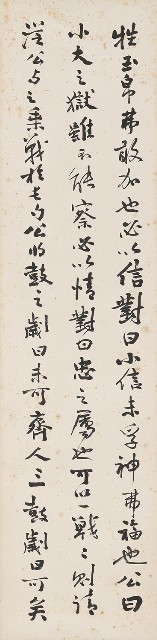 牲玉帛弗敢加也必以信對曰小信未孚神弗福也公曰
小大之獄雖不能察必以情對曰忠之屬也可以一戰〻則請
從公与之乗戰於長勺公將鼓之劌曰未可齊人三鼓劌曰可矣